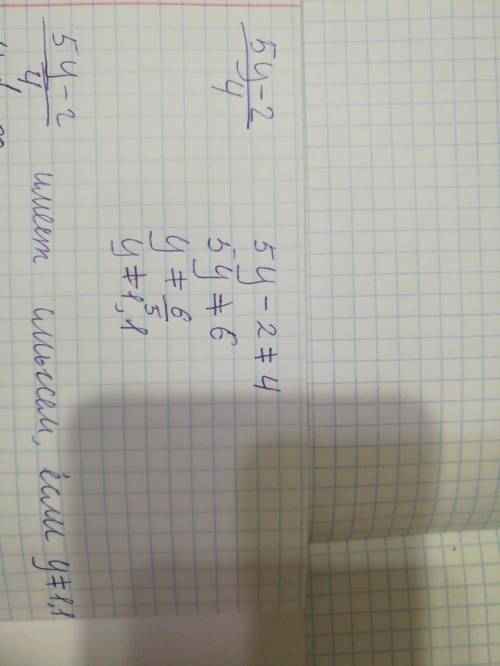 5y-2
4
5y-2≠4
5y≠6
y≠6/5
y≠1,1
5y-2
4
имеет смысл, если y≠1,1